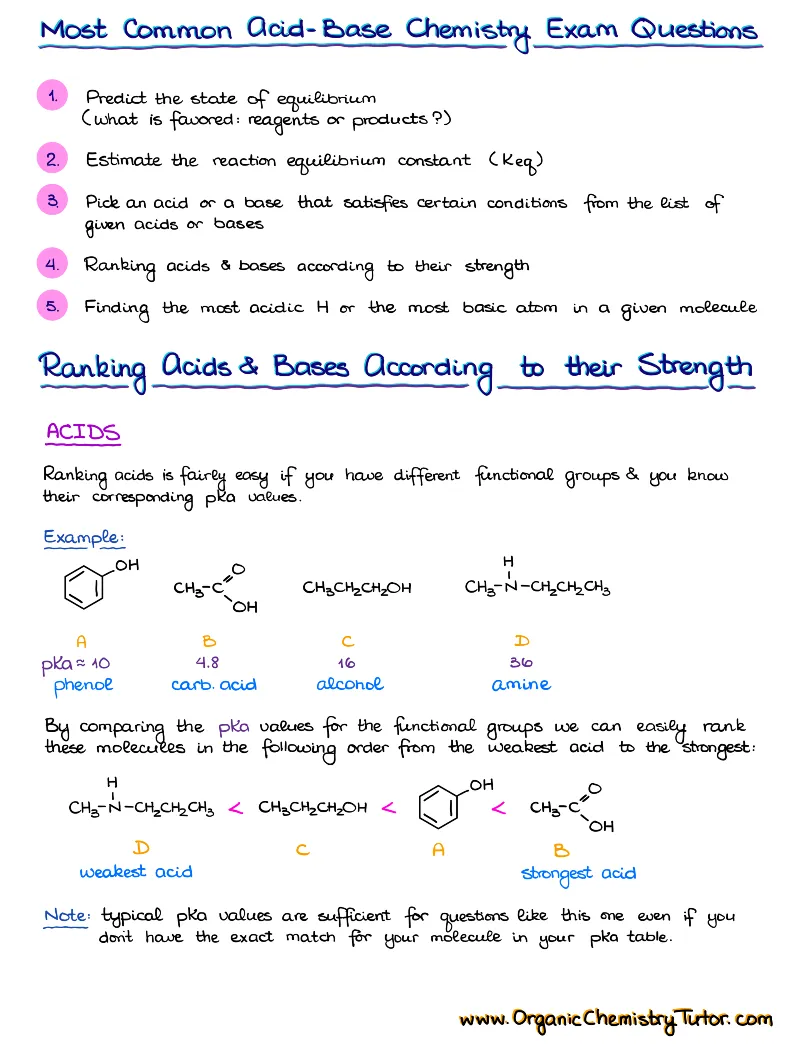 Most Common Acid-Base Chemistry Exam Questions
1. Predict the state of equilibrium
(what is favored: reagents or products?)
2. Estimate the reaction equilibrium constant (Keq)
3. Pick an acid or a base that satisfies certain conditions from the list of
given acids or bases
4. Ranking acids & bases according to their strength
5. Finding the most acidic H or the most basic atom in a given molecule
Ranking Acids & Bases According to their Strength
ACIDS
Ranking acids is fairly easy if you have different functional groups & you know
their corresponding pKa values.
Example:
OH CH₃-C O OH CH₃CH₂CH₂OH CH₃-N-CH₂CH₂CH₃ H
A B C D
pKa ≈ 10 4.8 16 36
phenol carb. acid alcohol amine
By comparing the pKa values for the functional groups we can easily rank
these molecules in the following order from the weakest acid to the strongest:
H CH₃-N-CH₂CH₂CH₃ < CH₃CH₂CH₂OH < OH < CH₃-C O OH
D C A B
weakest acid strongest acid
Note: typical pKa values are sufficient for questions like this one even if you
don't have the exact match for your molecule in your pKa table.
www.OrganicChemistryTutor.com